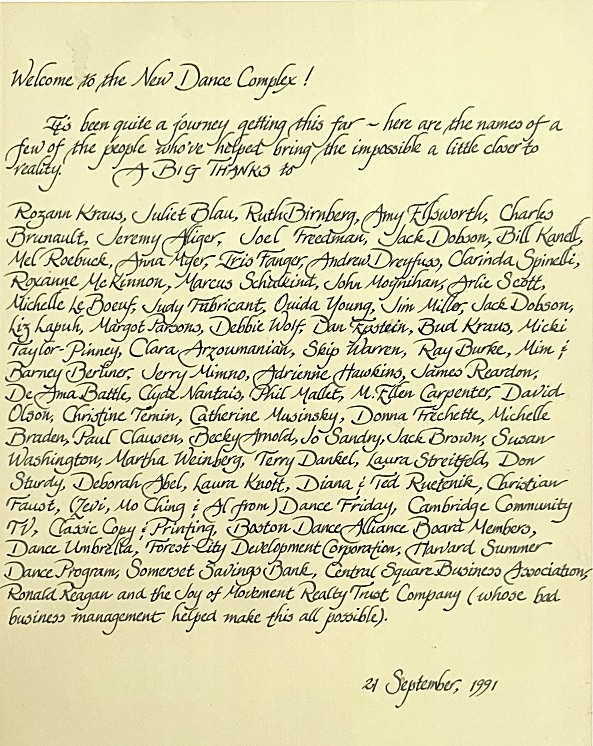 Welcome to the New Dance Complex !
It's been quite a journey getting this far - here are the names of a
few of the people who've helped bring the impossible a little closer to
reality. A BIG THANKS to
Rozann Kraus, Juliet Blau, Ruth Birnberg, Amy Ellsworth, Charles
Brunault, Jeremy Aliger, Joel Freedman, Jack Dobson, Bill Kanell,
Mel Roebuck, Anna Myer, Iris Fanger, Andrew Dreyfuss, Clarinda Spinelli,
Roxanne McKinnon, Marcus Schulkind, John Moynihan, Arlie Scott,
Michelle Le Boeuf, Judy Fabricant, Ouida Young, Jim Miller, Jack Dobson,
Liz Lapuh, Margot Parsons, Debbie Wolf, Dan Epstein, Bud Kraus, Micki
Taylor-Pinney, Clara Arzoumanian, Skip Warren, Ray Burke, Mim &
Barney Berliner, Jerry Mimno, Adrienne Hawkins, James Reardon,
De Ama Battle, Clyde Nantais, Phil Mallet, M. Ellen Carpenter, David
Olson, Christine Temin, Catherine Musinsky, Donna Frechette, Michelle
Braden, Paul Clausen, Becky Arnold, Jo Sandry, Jack Brown, Susan
Washington, Martha Weinberg, Terry Dankel, Laura Streitfeld, Don
Sturdy, Deborah Abel, Laura Knott, Diana & Ted Ruetenik, Christian
Faust, (Zevi, Mo Ching & Al from) Dance Friday, Cambridge Community
TV, Classic Copy & Printing, Boston Dance Alliance Board Members,
Dance Umbrella, Forest City Development Corporation, Harvard Summer
Dance Program, Somerset Savings Bank, Central Square Business Association,
Ronald Reagan and the Joy of Movement Realty Trust Company (whose bad
business management helped make this all possible).
21 September, 1991